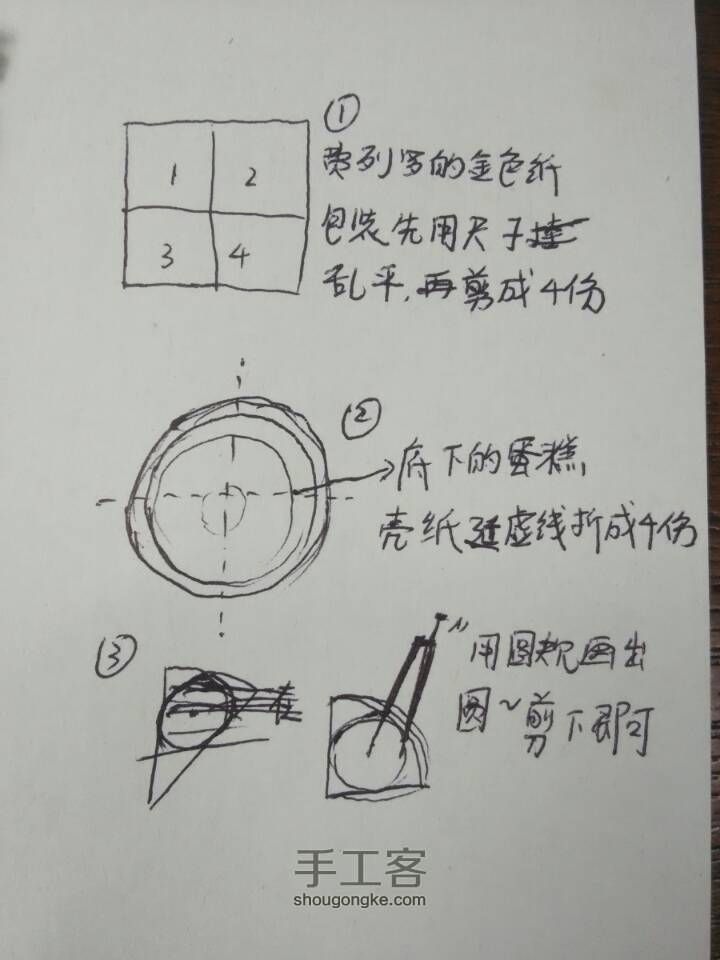 ①
费列罗的金色纸
包装先用尺子
乱平,再剪成4份
1 2
3 4
②
府下的蛋糕
壳纸延虚线折成4份
③
用圆规画出
圆~剪下即可
手工客
shougongke.com